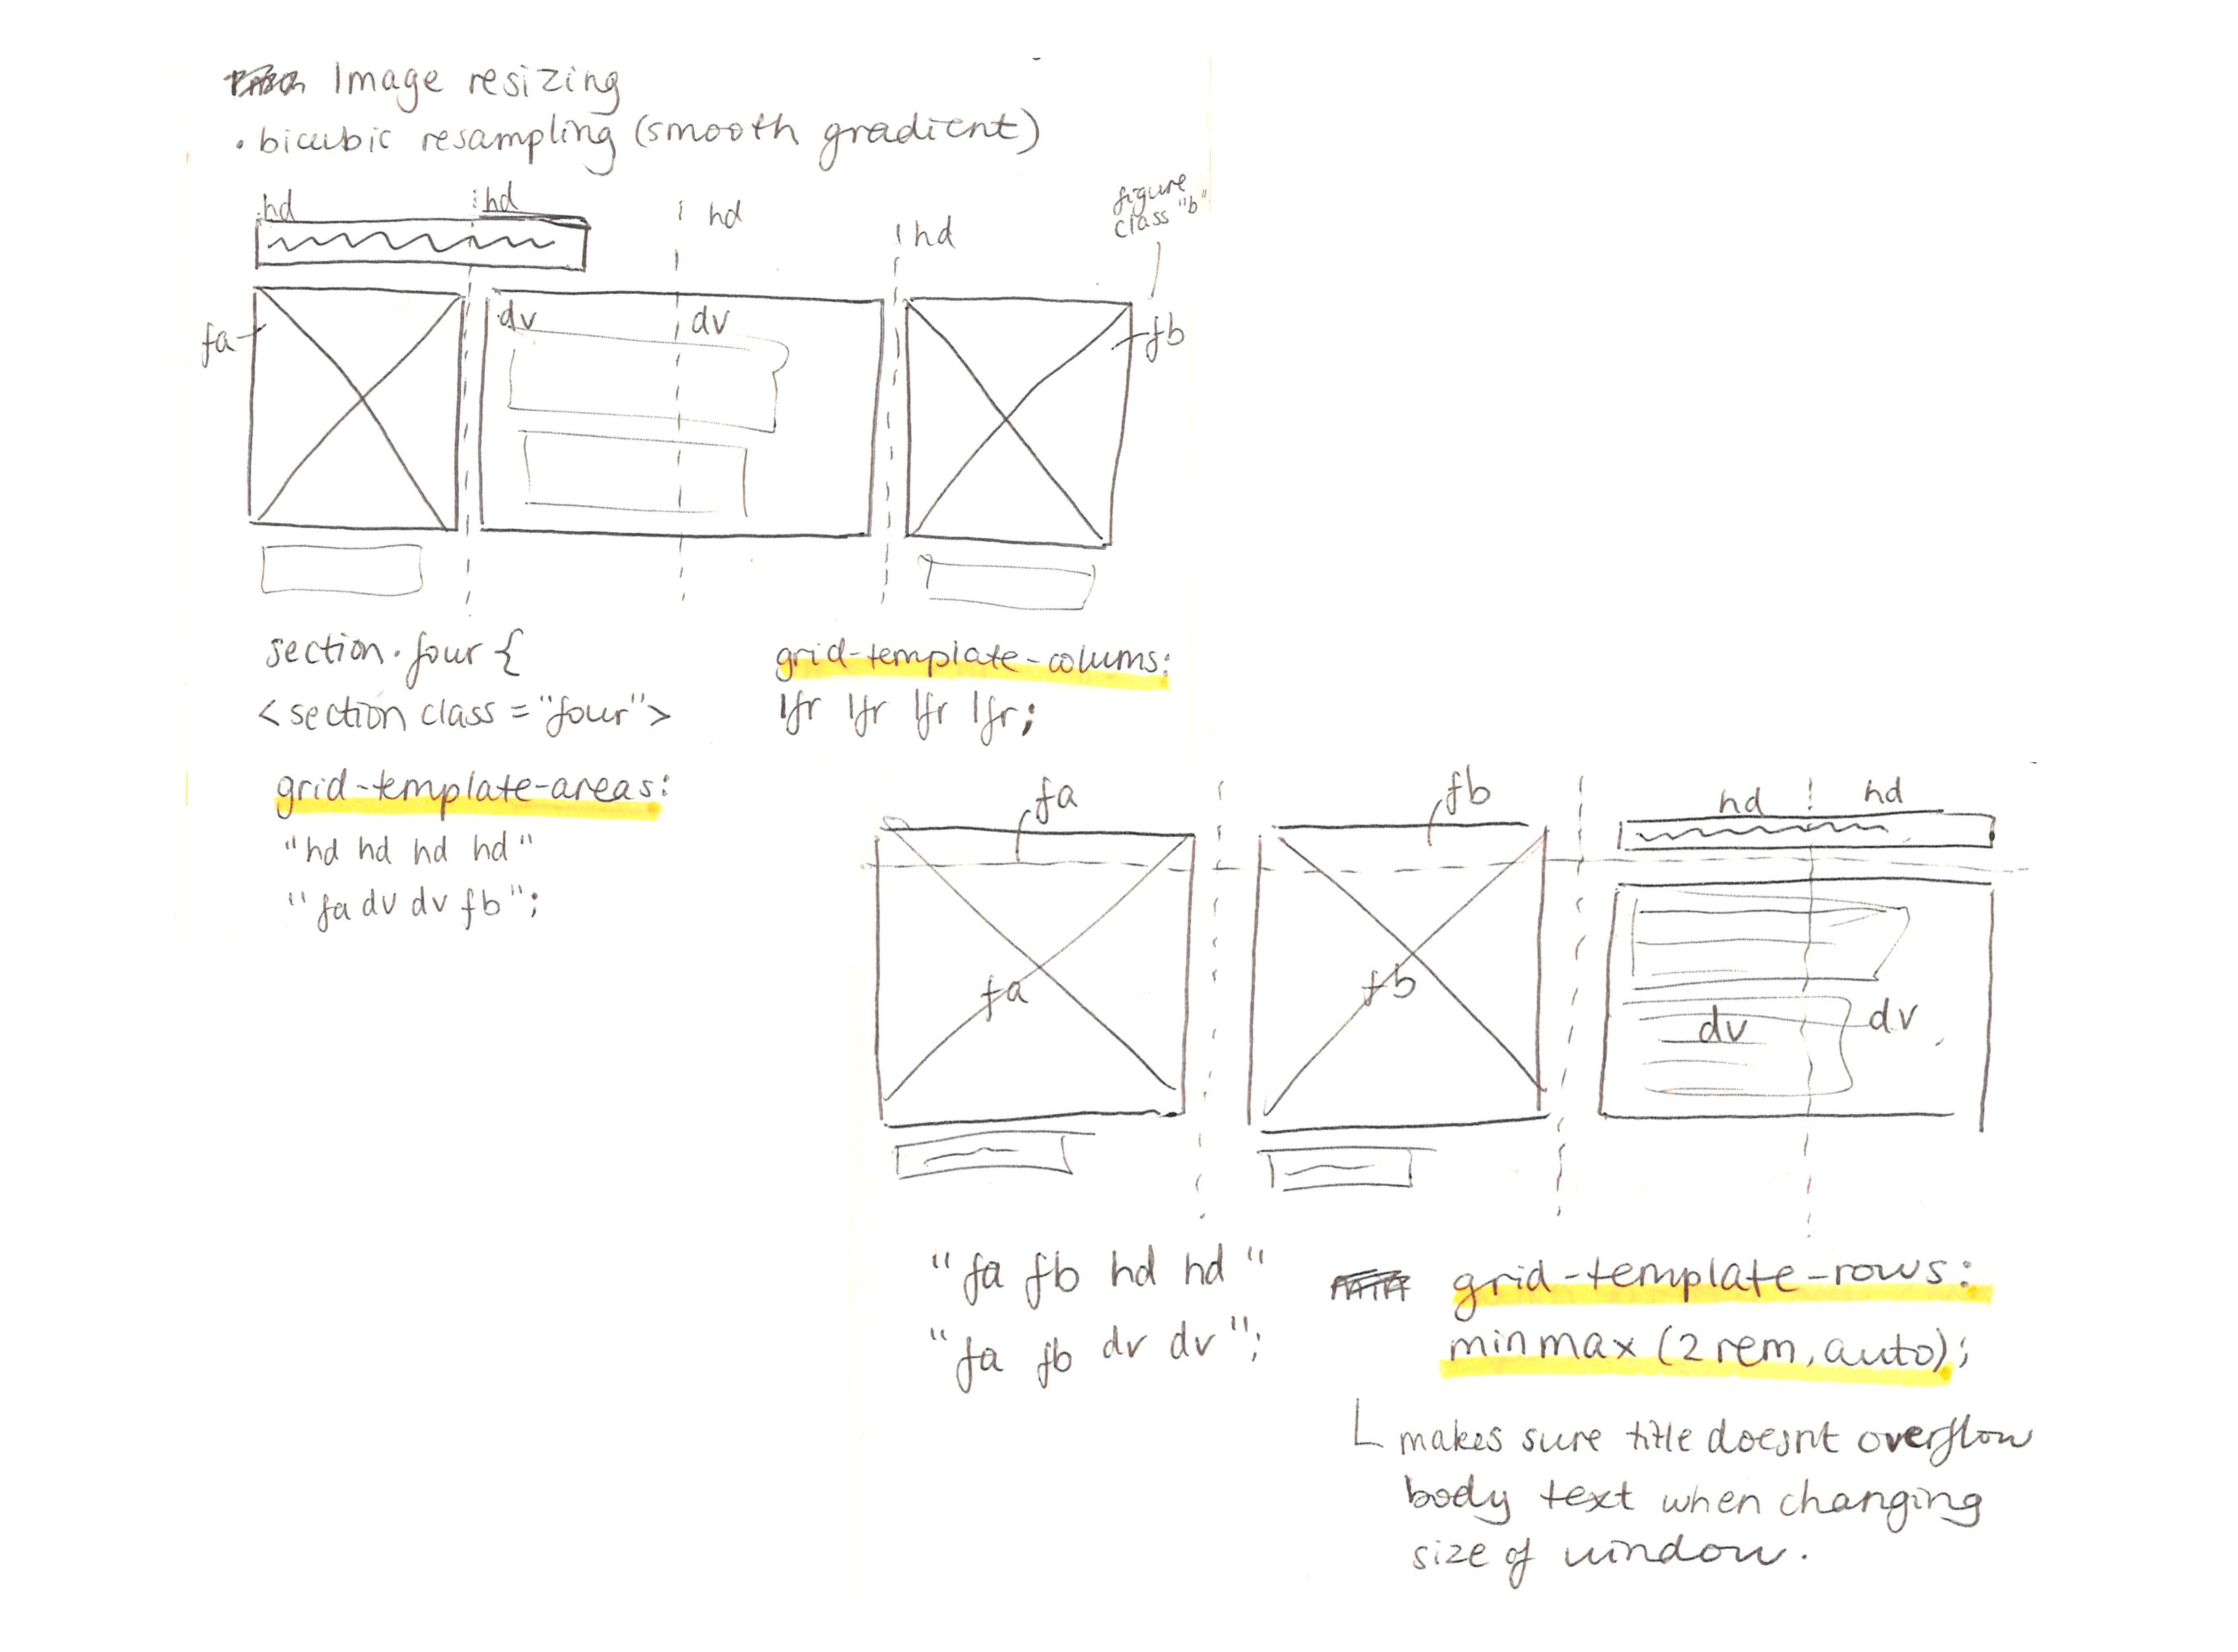 Image resizing
• bicubic resampling (smooth gradient)
hd hd hd hd
figure
class "b"
fa dv dv fb
section.four {
<section class = "four">
grid-template-areas:
"hd hd hd hd"
"fa dv dv fb";
grid-template-colums:
1fr 1fr 1fr 1fr;
fa fb hd hd
fa fb dv dv
"fa fb hd hd"
"fa fb dv dv";
grid-template-rows:
minmax (2rem, auto);
makes sure title doesnt overflow
body text when changing
size of window.